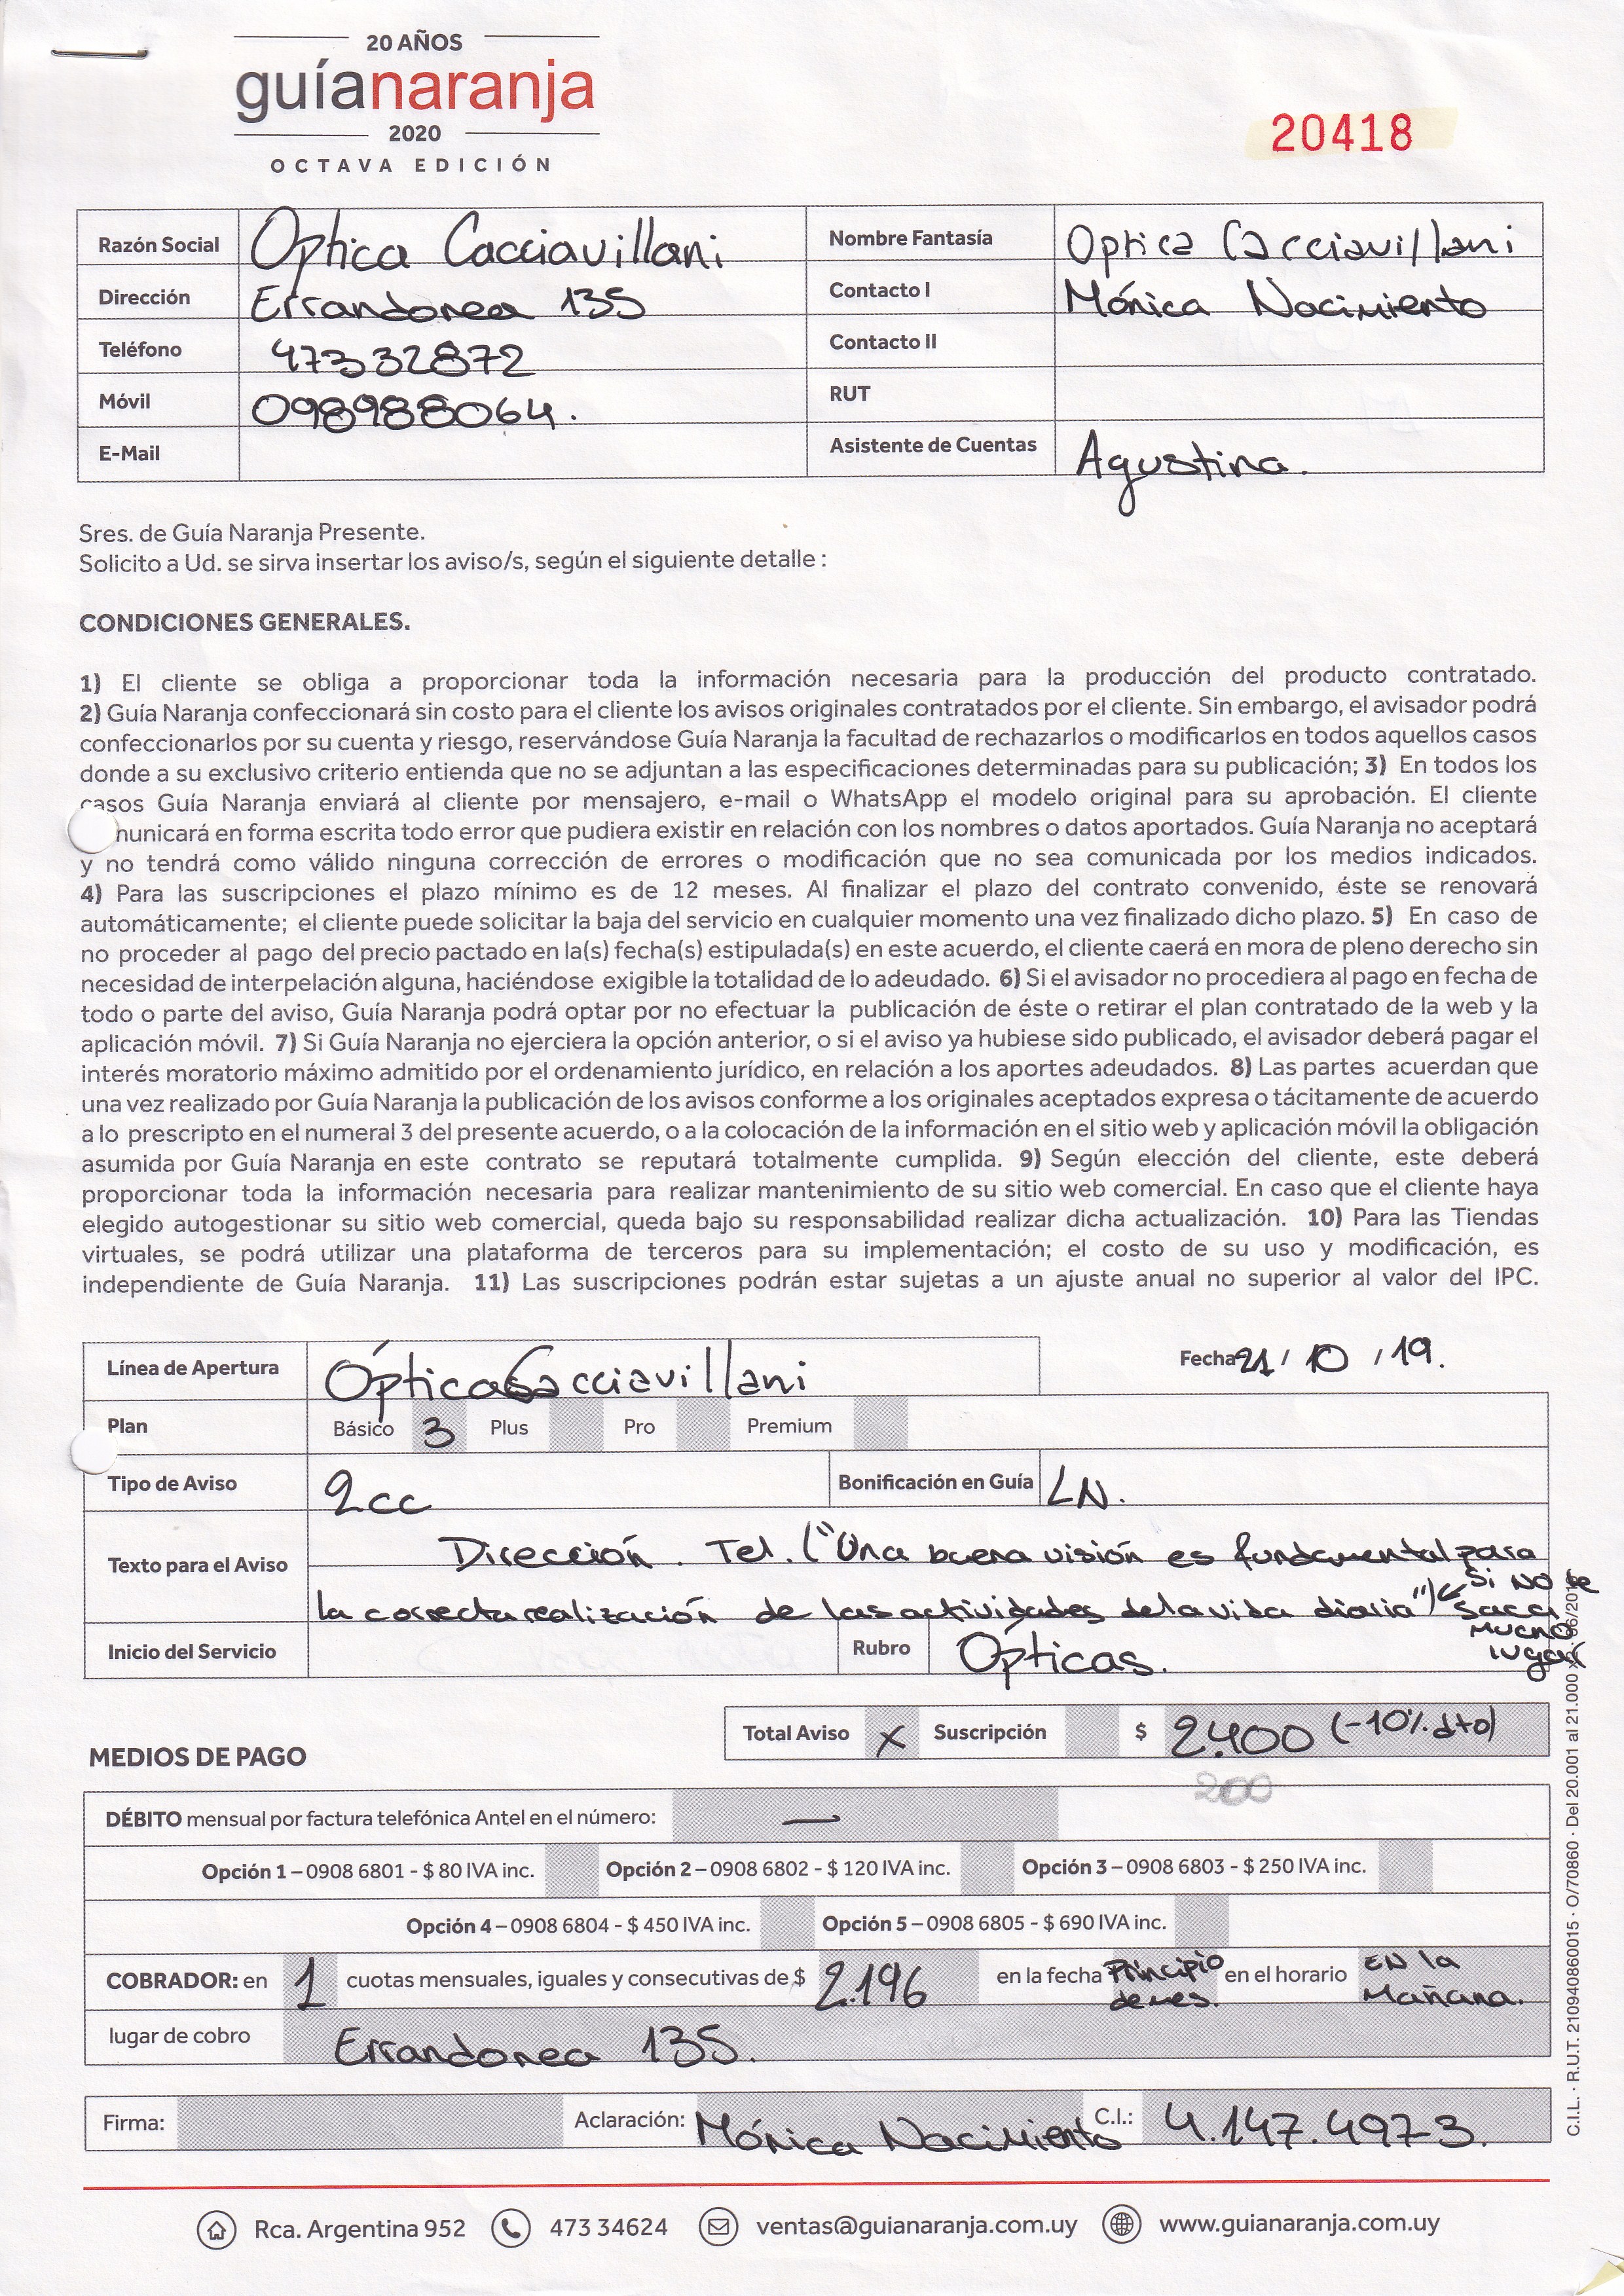 20 AÑOS
guíanaranja
2020
OCTAVA EDICIÓN
20418
Razón Social Optica Cacciavillani Nombre Fantasía Optica Cacciavillani
Dirección Errandonea 135 Contacto I Mónica Nacimiento
Teléfono 47332872 Contacto II
Móvil 098988064. RUT
E-Mail Asistente de Cuentas Agustina.
Sres. de Guía Naranja Presente.
Solicito a Ud. se sirva insertar los aviso/s, según el siguiente detalle :
CONDICIONES GENERALES.
1) El cliente se obliga a proporcionar toda la información necesaria para la producción del producto contratado.
2) Guía Naranja confeccionará sin costo para el cliente los avisos originales contratados por el cliente. Sin embargo, el avisador podrá
confeccionarlos por su cuenta y riesgo, reservándose Guía Naranja la facultad de rechazarlos o modificarlos en todos aquellos casos
donde a su exclusivo criterio entienda que no se adjuntan a las especificaciones determinadas para su publicación; 3) En todos los
casos Guía Naranja enviará al cliente por mensajero, e-mail o WhatsApp el modelo original para su aprobación. El cliente
municará en forma escrita todo error que pudiera existir en relación con los nombres o datos aportados. Guía Naranja no aceptará
y no tendrá como válido ninguna corrección de errores o modificación que no sea comunicada por los medios indicados.
4) Para las suscripciones el plazo mínimo es de 12 meses. Al finalizar el plazo del contrato convenido, éste se renovará
automáticamente; el cliente puede solicitar la baja del servicio en cualquier momento una vez finalizado dicho plazo. 5) En caso de
no proceder al pago del precio pactado en la(s) fecha(s) estipulada(s) en este acuerdo, el cliente caerá en mora de pleno derecho sin
necesidad de interpelación alguna, haciéndose exigible la totalidad de lo adeudado. 6) Si el avisador no procediera al pago en fecha de
todo o parte del aviso, Guía Naranja podrá optar por no efectuar la publicación de éste o retirar el plan contratado de la web y la
aplicación móvil. 7) Si Guía Naranja no ejerciera la opción anterior, o si el aviso ya hubiese sido publicado, el avisador deberá pagar el
interés moratorio máximo admitido por el ordenamiento jurídico, en relación a los aportes adeudados. 8) Las partes acuerdan que
una vez realizado por Guía Naranja la publicación de los avisos conforme a los originales aceptados expresa o tácitamente de acuerdo
a lo prescripto en el numeral 3 del presente acuerdo, o a la colocación de la información en el sitio web y aplicación móvil la obligación
asumida por Guía Naranja en este contrato se reputará totalmente cumplida. 9) Según elección del cliente, este deberá
proporcionar toda la información necesaria para realizar mantenimiento de su sitio web comercial. En caso que el cliente haya
elegido autogestionar su sitio web comercial, queda bajo su responsabilidad realizar dicha actualización. 10) Para las Tiendas
virtuales, se podrá utilizar una plataforma de terceros para su implementación; el costo de su uso y modificación, es
independiente de Guía Naranja. 11) Las suscripciones podrán estar sujetas a un ajuste anual no superior al valor del IPC.
Línea de Apertura Óptica Cacciavillani Fecha 21 / 10 / 19.
Plan Básico 3 Plus Pro Premium
Tipo de Aviso 2cc Bonificación en Guía LN.
Texto para el Aviso Dirección. Tel. ("Una buena visión es fundamental para
la correcta realización de las actividades de la vida diaria")
Si NO te
saca
mucho
lugar
Inicio del Servicio Rubro Ópticas.
Total Aviso X Suscripción $ 2.400 (-10% dto)
MEDIOS DE PAGO
200
DÉBITO mensual por factura telefónica Antel en el número: —
Opción 1 – 0908 6801 - $ 80 IVA inc. Opción 2 – 0908 6802 - $ 120 IVA inc. Opción 3 – 0908 6803 - $ 250 IVA inc.
Opción 4 – 0908 6804 - $ 450 IVA inc. Opción 5 – 0908 6805 - $ 690 IVA inc.
COBRADOR: en 1 cuotas mensuales, iguales y consecutivas de $ 2.196 en la fecha Principio de mes. en el horario EN la Mañana.
lugar de cobro Errandonea 135.
Firma: Aclaración: Mónica Nacimiento C.I.: 4.147.497-3.
Rca. Argentina 952 473 34624 ventas@guianaranja.com.uy www.guianaranja.com.uy
C.I.L. · R.U.T. 210940860015 · O/70860 · Del 20.001 al 21.000